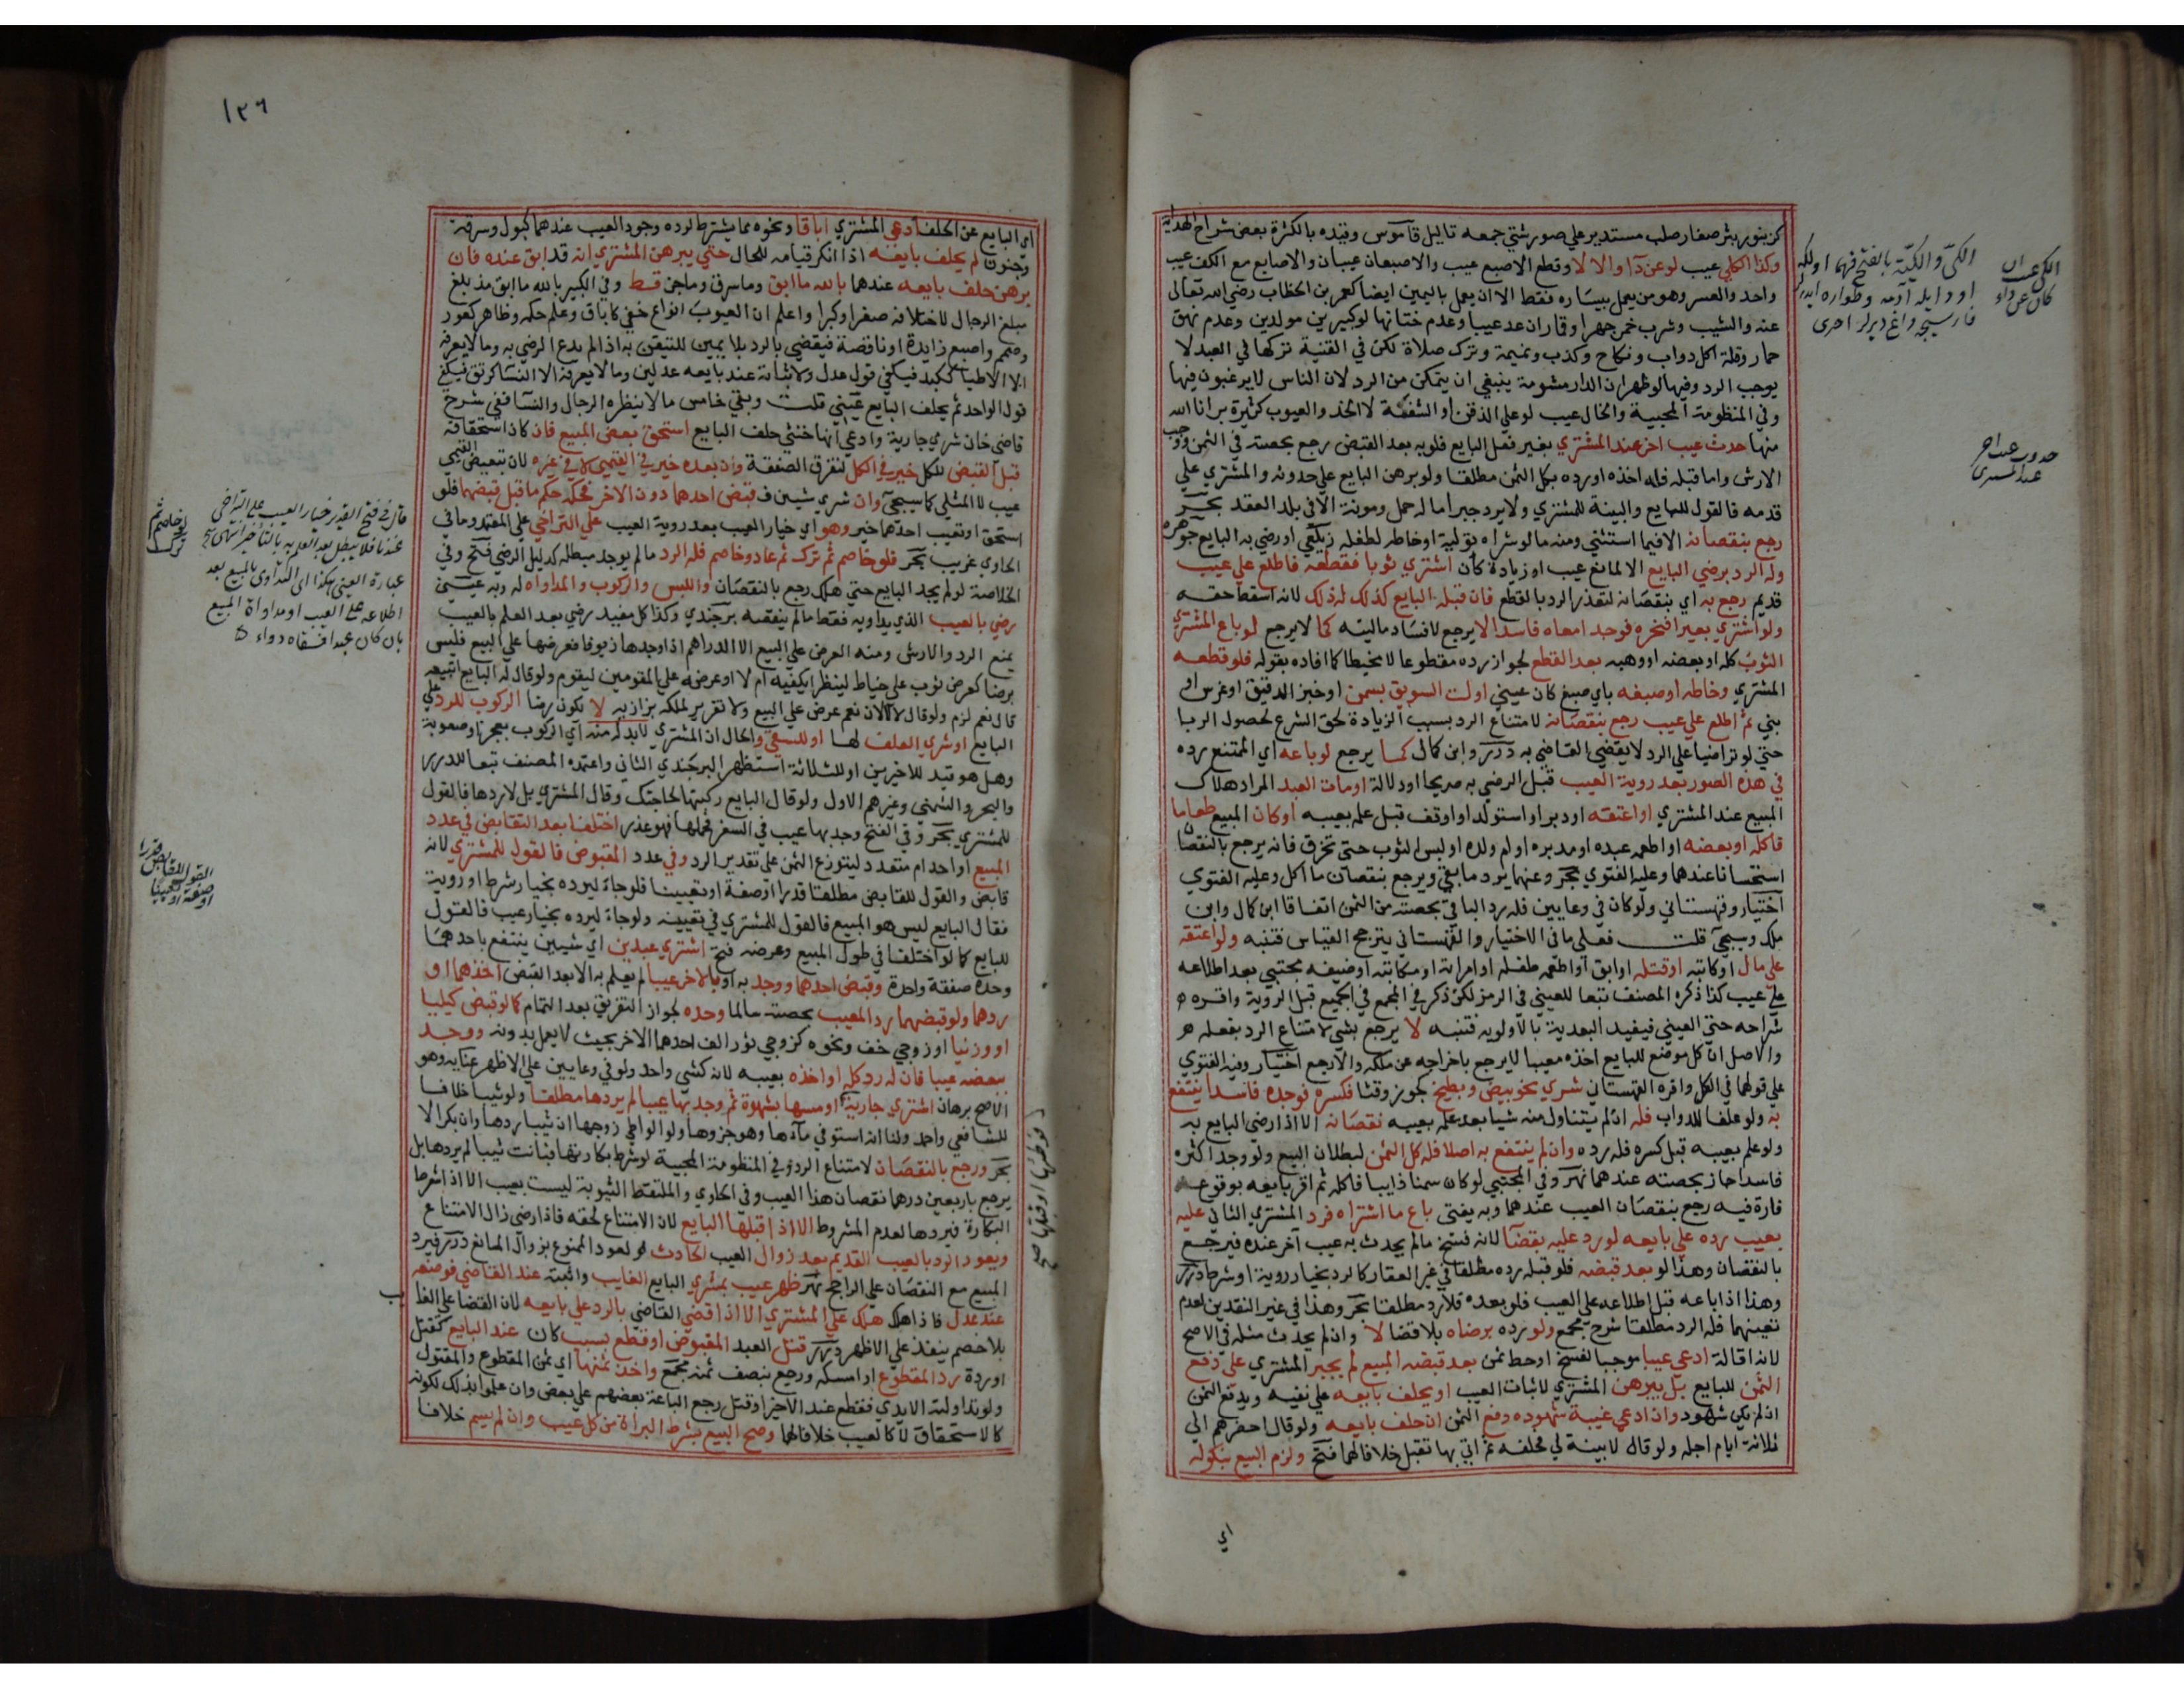 كزنبور بثر صغار صلب مستدير علي صور شتي جمعه تاليل قاموس وقيده بالكثرة بعض شراح الهداية
وكذا الكي عيب لو عن دآ والا لا وقطع الاصبع عيب والاصبعان عيبان والاصابع مع الكف عيب
واحد والعسر وهو من يعمل بيساره فقط الا ان يعمل باليمين ايضا كعمر بن الخطاب رضي الله تعالى
عنه والشيب وشرب خمر جهرا وقمار ان عد عيبا وعدم ختانهما لو كبيرين مولدين وعدم نهق
حمار وقلة اكل دواب ونكاح وكذب ونميمة وترك صلاة لكن في القنية تركها في العبد لا
يوجب الرد وفيها لو ظهر ان الدار مشومة ينبغي ان يتمكن من الرد لان الناس لا يرغبون فيها
وفي المنظومة المحبية والخال عيب لو علي الذقن او الشفة لا الخد والعيوب كثيرة برانا الله
منها حدث عيب اخر عند المشتري بغير فعل البايع فلو به بعد القبض رجع بحصته في الثمن ووجب
الارش واما قبله فله اخذه او رده بكل الثمن مطلقا ولو برهن البايع علي حدوثه والمشتري علي
قدمه فالقول للبايع والبينة للمشتري ولا يرد جبرا ما له حمل ومونة الا في بلد العقد بحر
رجع بنقصانه الا فيما استثني ومنه ما لو شراه تولية او خاطه لطفله زيلعي او رضي به البايع جوهره
وله الرد برضي البايع الا لمانع عيب او زيادة كان اشتري ثوبا فقطعه فاطلع علي عيب
قديم رجع به اي بنقصانه لتعذر الرد بالقطع فان قبله البايع كذلك له ذلك لانه اسقط حقه
ولو اشتري بعيرا فنحره فوجد امعاه فاسدا لا يرجع لافساد ماليته كما لا يرجع لو باع المشتري
الثوب كله او بعضه او وهبه بعد القطع لجواز رده مقطوعا لا مخيطا كما افاده بقوله فلو قطعه
المشتري وخاطه او صبغه باي صبغ كان عيني او لت السويق بسمن او خبز الدقيق او غرس او
بني ثم اطلع علي عيب رجع بنقصانه لامتناع الرد بسبب الزيادة لحق الشرع لحصول الربا
حتي لو تراضيا علي الرد لا يقضي القاضي به درر وابن كمال كما يرجع لو باعه اي الممتنع رده
في هذه الصور بعد روية العيب قبل الرضي به صريحا او دلالة او مات العبد المراد هلاك
المبيع عند المشتري او اعتقه او دبر او استولد او اوقف قبل علمه بعيبه او كان المبيع طعاما
فاكله او بعضه او اطعمه عبده او مدبره او ام ولده او لبس الثوب حتى تخرق فانه يرجع بالنقصان
استحسانا عندهما وعليه الفتوي بحر وعنهما يرد ما بقي ويرجع بنقصان ما اكل وعليه الفتوي
اختيار وقهستاني ولو كان في وعايين فله رد الباقي بحصته من الثمن اتفاقا ابن كمال وابن
ملك وسيجي قلت فعلى ما في الاختيار والقهستاني يترجح القياس فتنبه ولو اعتقه
على مال او كاتبه او قتله او ابق او اطعمه طفله او امراته او مكاتبه او ضيفه مجتبي بعد اطلاعه
علي عيب كذا ذكره المصنف تبعا للعيني في الرمز لكن ذكر في المجمع في الجميع قبل الروية واقره
شراحه حتي العيني فيفيد البعدية بالاولوية فتنبه لا يرجع بشي لامتناع الرد بفعله
والاصل ان كل موضع للبايع اخذه معيبا لا يرجع باخراجه عن ملكه والا رجع اختيار وفيه الفتوي
علي قولهما في الكل واقره القهستاني شري نحو بيض وبطيخ كجوز وقثا فكسره فوجده فاسدا ينتفع
به ولو علفا للدواب فله ان لم يتناول منه شيا بعد علمه بعيبه نقصانه الا اذا رضي البايع به
ولو علم بعيبه قبل كسره فله رده وان لم ينتفع به اصلا فله كل الثمن لبطلان البيع ولو وجد اكثره
فاسدا جاز بحصته عندهما نهر وفي المجتبي لو كان سمنا ذايبا فاكله ثم اقر بايعه بوقوع
فارة فيه رجع بنقصان العيب عندهما وبه يفتى باع ما اشتراه فرد المشتري الثاني عليه
بعيب رده علي بايعه لو رد عليه بقضآ لانه فسخ ما لم يحدث به عيب آخر عنده فيرجع
بالنقصان وهذا لو بعد قبضه فلو قبله رده مطلقا في غير العقار كالرد بخيار روية او شرط درر
وهذا اذا باعه قبل اطلاعه علي العيب فلو بعده فلا رد مطلقا بحر وهذا في غير النقدين لعدم
تعينهما فله الرد مطلقا شرح مجمع ولو رده برضاه بلا قضا لا وان لم يحدث مثله في الاصح
لانه اقالة ادعي عيبا موجبا لفسخ او حط ثمن بعد قبضه المبيع لم يجبر المشتري علي دفع
الثمن للبايع بل يبرهن المشتري لاثبات العيب او يحلف بايعه علي نفيه ويدفع الثمن
ان لم يكن شهود وان ادعي غيبة شهوده دفع الثمن ان حلف بايعه ولو قال احضرهم الي
ثلاثة ايام اجله ولو قال لا بينة لي فحلفه ثم اتي بها تقبل خلافا لهما فتح ولزم البيع بنكوله
اي
الكي والكية بالفتح فيهما اولكه
حدوث عيب اخر
عند المشتري
١٢٦
اي البايع عن الحلف ادعي المشتري اباقا ونحوه مما يشترط لرده وجود العيب عندهما كبول وسرقة
وجنون لم يحلف بايعه اذا انكر قيامه للحال حتي يبرهن المشتري انه قد ابق عنده فان
برهن حلف بايعه عندهما بالله ما ابق وما سرق وما جن قط وفي الكبير بالله ما ابق مذ بلغ
مبلغ الرجال لاختلافه صغرا وكبرا واعلم ان العيوب انواع خفي كاباق وعلم حكمه وظاهر كعور
وصمم واصبع زايدة او ناقصة فيقضي بالرد بلا يمين للتيقن به اذا لم يدع الرضي به وما لا يعرفه
الا الاطبا ككبد فيكفي قول عدل ولاثباته عند بايعه عدلين وما لا يعرفه الا النسا كرتق فيكفي
قول الواحد ثم يحلف البايع عيني قلت وبقي خامس ما لا ينظره الرجال والنسا ففي شرح
قاضي خان شري جارية وادعي انها خنثي حلف البايع استحق بعض المبيع فان كان استحقاقه
قبل القبض للكل خير في الكل لتفرق الصفقة وان بعده خير في القيمي لا في غيره لان تبعيض القيمي
عيب لا المثلي كما سيجي وان شري شيين فقبض احدهما دون الاخر فحكمه حكم ما قبل قبضهما فلو
استحق او تعيب احدهما خير وهو اي خيار العيب بعد روية العيب علي التراخي علي المعتمد وما في
الحاوي غريب بحر فلو خاصم ثم ترك ثم عاد وخاصم فله الرد ما لم يوجد مبطله كدليل الرضي فتح وفي
الخلاصة لو لم يجد البايع حتي هلك رجع بالنقصان واللبس والركوب والمداواه له وبه عيني
رضي بالعيب الذي يداويه فقط ما لم ينقصه برجندي وكذا كل مفيد رضي بعد العلم بالعيب
يمنع الرد والارش ومنه العرض علي البيع الا الدراهم اذا وجدها زيوفا فعرضها علي البيع فليس
برضا كعرض ثوب علي خياط لينظر ايكفيه ام لا او عرضه علي المقومين ليقوم ولو قال له البايع اتبيعه
قال نعم لزم ولو قال لا لا لان نعم عرض علي البيع ولا تقرير لملكه بزازيه لا تكون رضا الركوب للرد علي
البايع او شري العلف لها او للسقي والحال ان المشتري لا بد له منه اي الركوب بعجز او صعوبة
وهل هو قيد للاخيرين او للثلاثة استظهر البرجندي الثاني واعتمده المصنف تبعا للدرر
والبحر والشمني وغيرهم الاول ولو قال البايع ركبتها لحاجتك وقال المشتري بل لاردها فالقول
للمشتري بحر وفي الفتح وجد بها عيب في السفر فحملها فهو عذر اختلفا بعد التقابض في عدد
المبيع اواحد ام متعدد ليتوزع الثمن على تقدير الرد وفي عدد المقبوض فالقول للمشتري لانه
قابض والقول للقابض مطلقا قدرا او صفة او تعيينا فلو جآء ليرده بخيار شرط او روية
فقال البايع ليس هو المبيع فالقول للمشتري في تعيينه ولو جاء ليرده بخيار عيب فالقول
للبايع كما لو اختلفا في طول المبيع وعرضه فتح اشتري عبدين اي شيين ينتفع باحدهما
وحده صفقة واحدة وقبض احدهما ووجد به او بالاخر عيبا لم يعلم به الا بعد القبض اخذهما او
ردهما ولو قبضهما رد المعيب بحصته سالما وحده لجواز التفريق بعد التمام كما لو قبض كيليا
او وزنيا او زوجي خف ونحوه كزوجي ثور الف احدهما الاخر بحيث لا يعمل بدونه ووجد
ببعضه عيبا فان له رد كله او اخذه بعيبه لانه كشي واحد ولو في وعايين علي الاظهر عنايه وهو
الاصح برهان اشتري جارية او مسها بشهوة ثم وجد بها عيبا لم يردها مطلقا ولو ثيبا خلافا
للشافعي واحمد ولنا انه استوفي مآءها وهو جزوها ولو الواطي زوجها ان ثيبا ردها وان بكرا لا
بحر ورجع بالنقصان لامتناع الرد وفي المنظومة المحبية لو شرط بكارتها فبانت ثيبا لم يردها بل
يرجع باربعين درهما نقصان هذا العيب وفي الحاوي والملتقط الثيوبة ليست بعيب الا اذا شرط
البكارة فيردها لعدم المشروط الا اذا قبلها البايع لان الامتناع لحقه فاذا رضي زال الامتناع
ويعود الرد بالعيب القديم بعد زوال العيب الحادث لعود الممنوع بزوال المانع درر فيرد
المبيع مع النقصان علي الراجح نهر ظهر عيب بمشري البايع الغايب واثبته عند القاضي فوضعه
عند عدل فاذا هلك هلك علي المشتري الا اذا قضي القاضي بالرد علي بايعه لان القضا علي الغا
يب
بلا خصم ينفذ علي الاظهر درر قتل العبد المقبوض او قطع بسبب كان عند البايع كقتل
او ردة رد المقطوع او امسكه ورجع بنصف ثمنه مجمع واخذ ثمنهما اي ثمن المقطوع والمقتول
ولو تداولته الايدي فقطع عند الاخير او قتل رجع الباعة بعضهم علي بعض وان علموا بذلك لكونه
كالاستحقاق لا كالعيب خلافا لهما وصح البيع بشرط البراة من كل عيب وان لم يسم خلافا
فوطئها او قبلها صح
لو خاصم ثم
ترك
قال في فتح القدير خيار العيب علي التراخي
عندنا فلا يبطل بعد العلم به بالتاخير انتهى
عبارة العيني هكذا اى التداوي بالمبيع بعد
اطلاعه على العيب او مداواة المبيع
بان كان عبدا فسقاه دواء
القول للقابض قدرا
او صفة او تعيينا